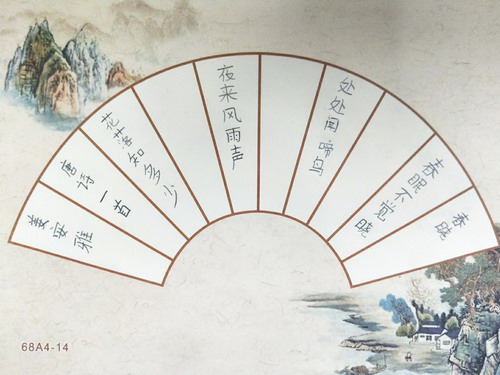 春晓
春眠不觉晓
处处闻啼鸟
夜来风雨声
花落知多少
唐诗一首
姜安雅
68A4-14